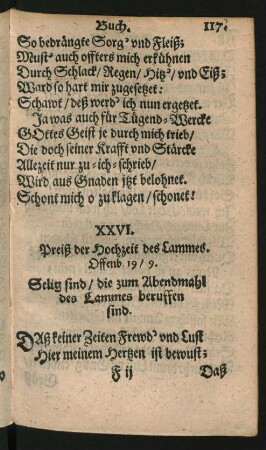 Buch. 117.
So bedrängte Sorg' und Fleiß;
Must' auch offters mich erkühnen
Durch Schlack/ Regen/ Hitz'/ und Eiß;
Ward so hart mir zugesetzet:
Schawt/ deß werd' ich nun ergetzet.
Ja was auch für Tügend-Wercke
GOttes Geist je durch mich trieb/
Die doch seiner Krafft und Stärcke
Allezeit nur zu-ich-schrieb/
Wird aus Gnaden jtzt belohnet.
Schont mich o zu klagen/ schonet!
XXVI.
Preiß der Hochzeit des Lammes.
Offenb. 19/ 9.
Selig sind/ die zum Abendmahl
des Lammes beruffen
sind.
DAß keiner Zeiten Frewd' und Lust
Hier meinem Hertzen ist bewust;
F ij Daß